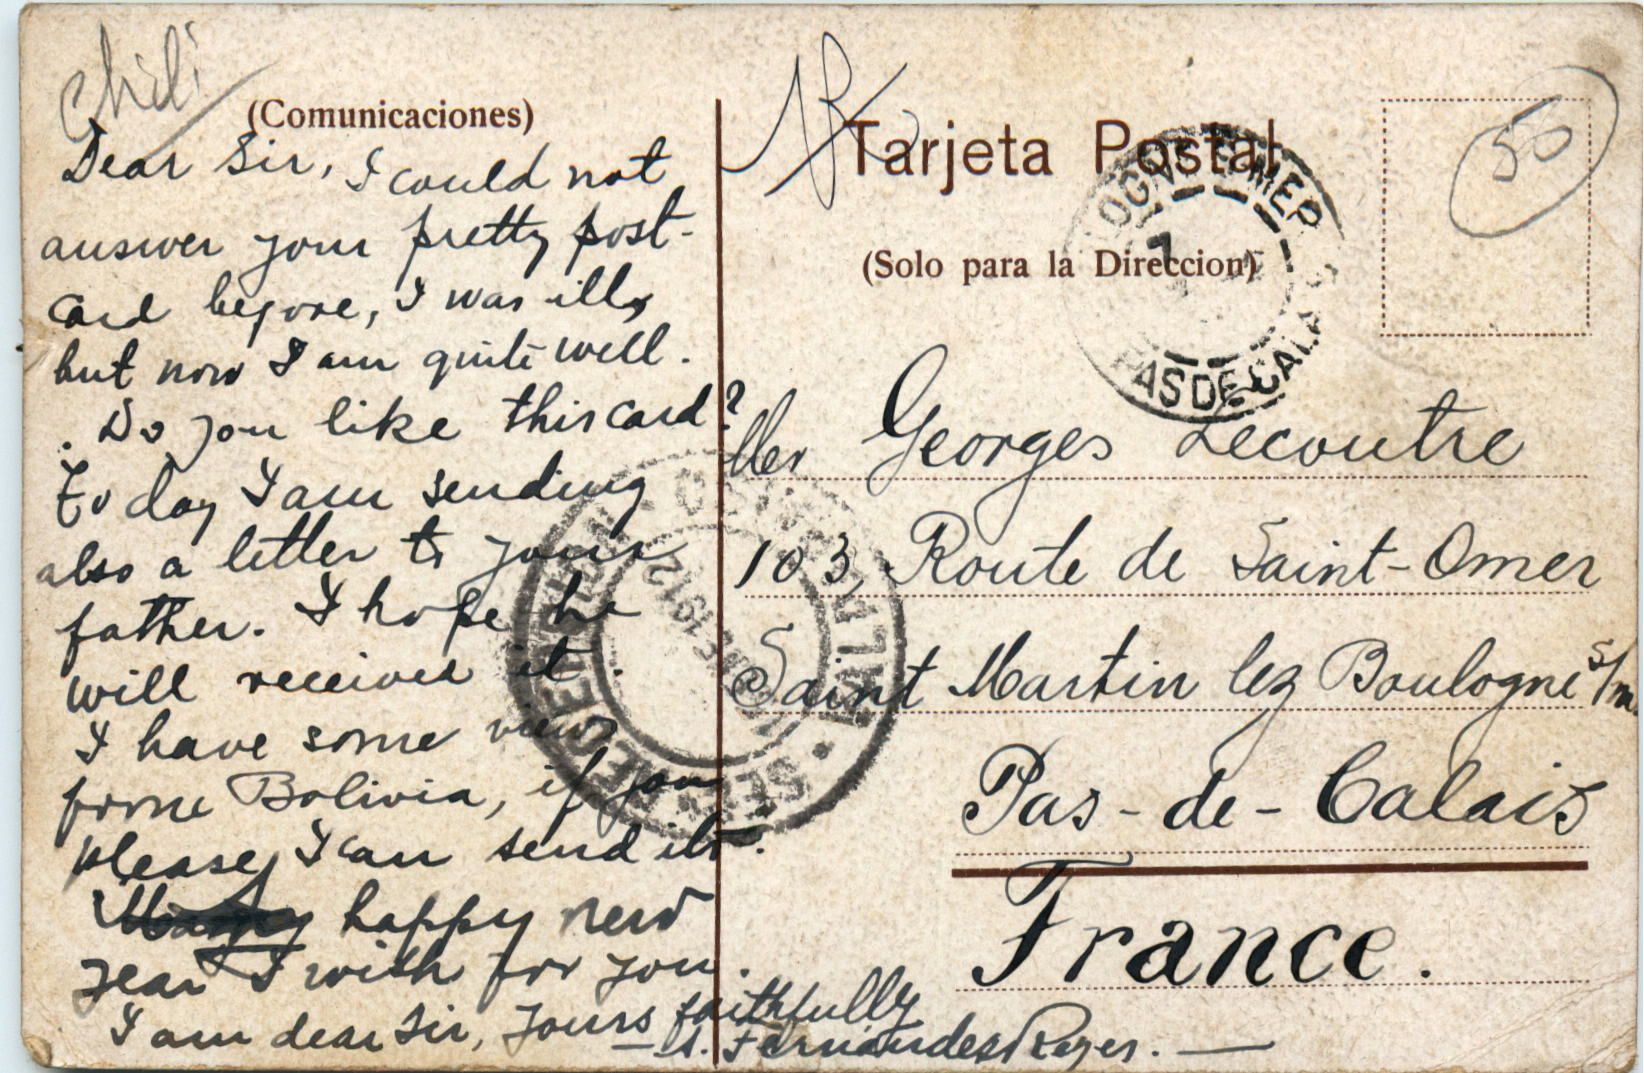 Chili
(Comunicaciones)
Dear Sir, I could not
answer your pretty post-
card before, I was ill,
but now I am quite well.
. Do you like this card?
To day I am sending
also a letter to your
father. I hope he
will received it.
I have some views
frome Bolivia, if you
please, I can send its.
happy new
year I wish for you.
I am dear Sir, yours faithfully
A. Fernandes Reyes.
Tarjeta Postal
(Solo para la Direccion)
50
7
PAS DE CALAIS
1912
Georges Lecoutre
103, Route de Saint-Omer
Saint Martin lez Boulogne s/m.
Pas-de-Calais
France.